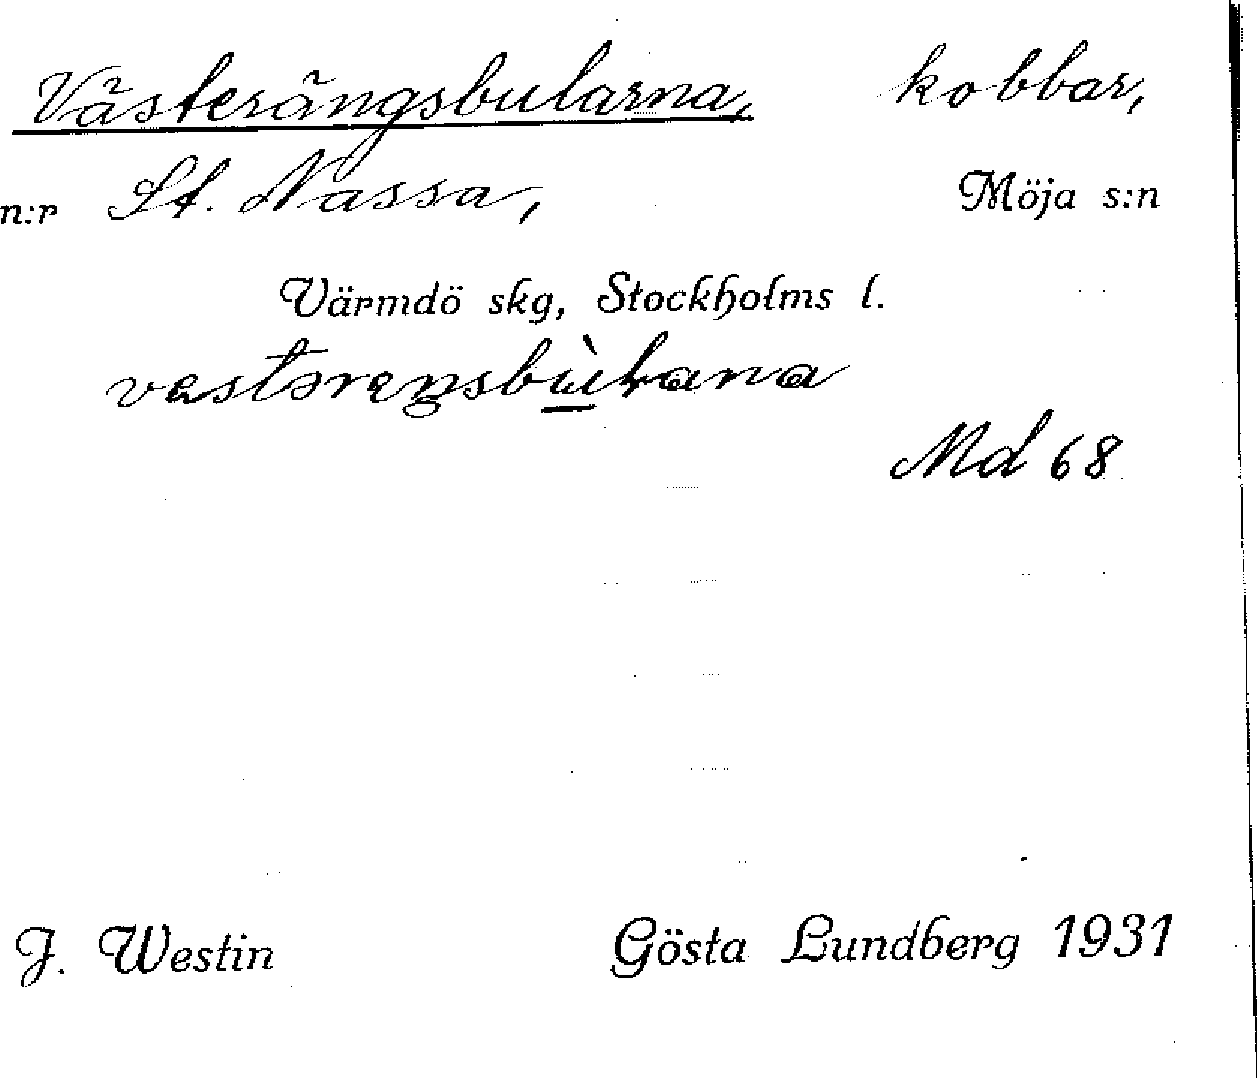 Västerängsbularna, kobbar,
n:r St. Nassa, Möja s:n
Värmdö skg, Stockholms l.
Md 68
J. Westin Gösta Lundberg 1931